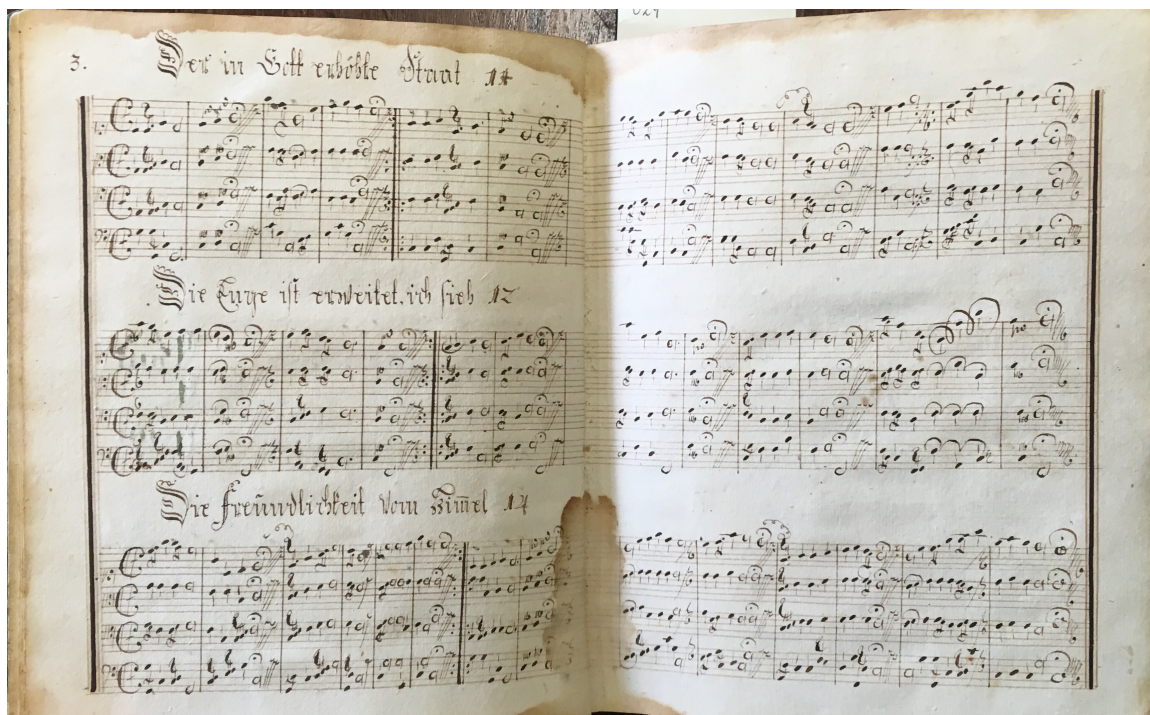 029
3. Der in Gott erhöhte Staat 11
Die Enge ist erweitet, ich sieh 12
Die Freundlichkeit vom Him̅el 14